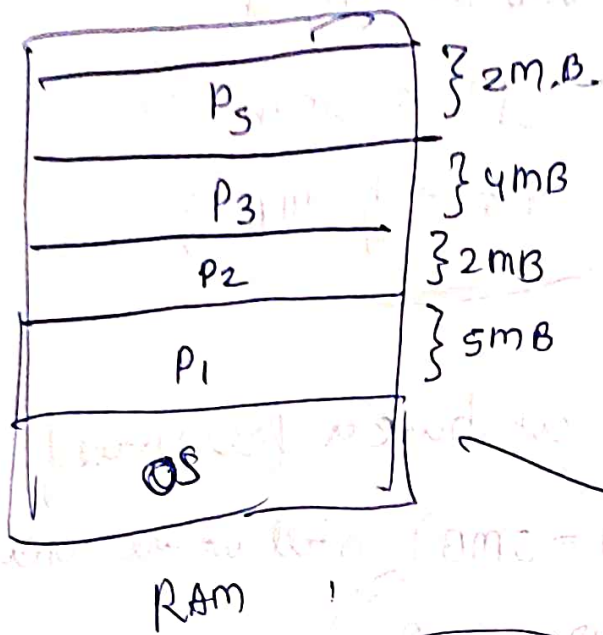 P5 } 2M.B.
P3 } 4MB
P2 } 2MB
P1 } 5MB
OS
RAM